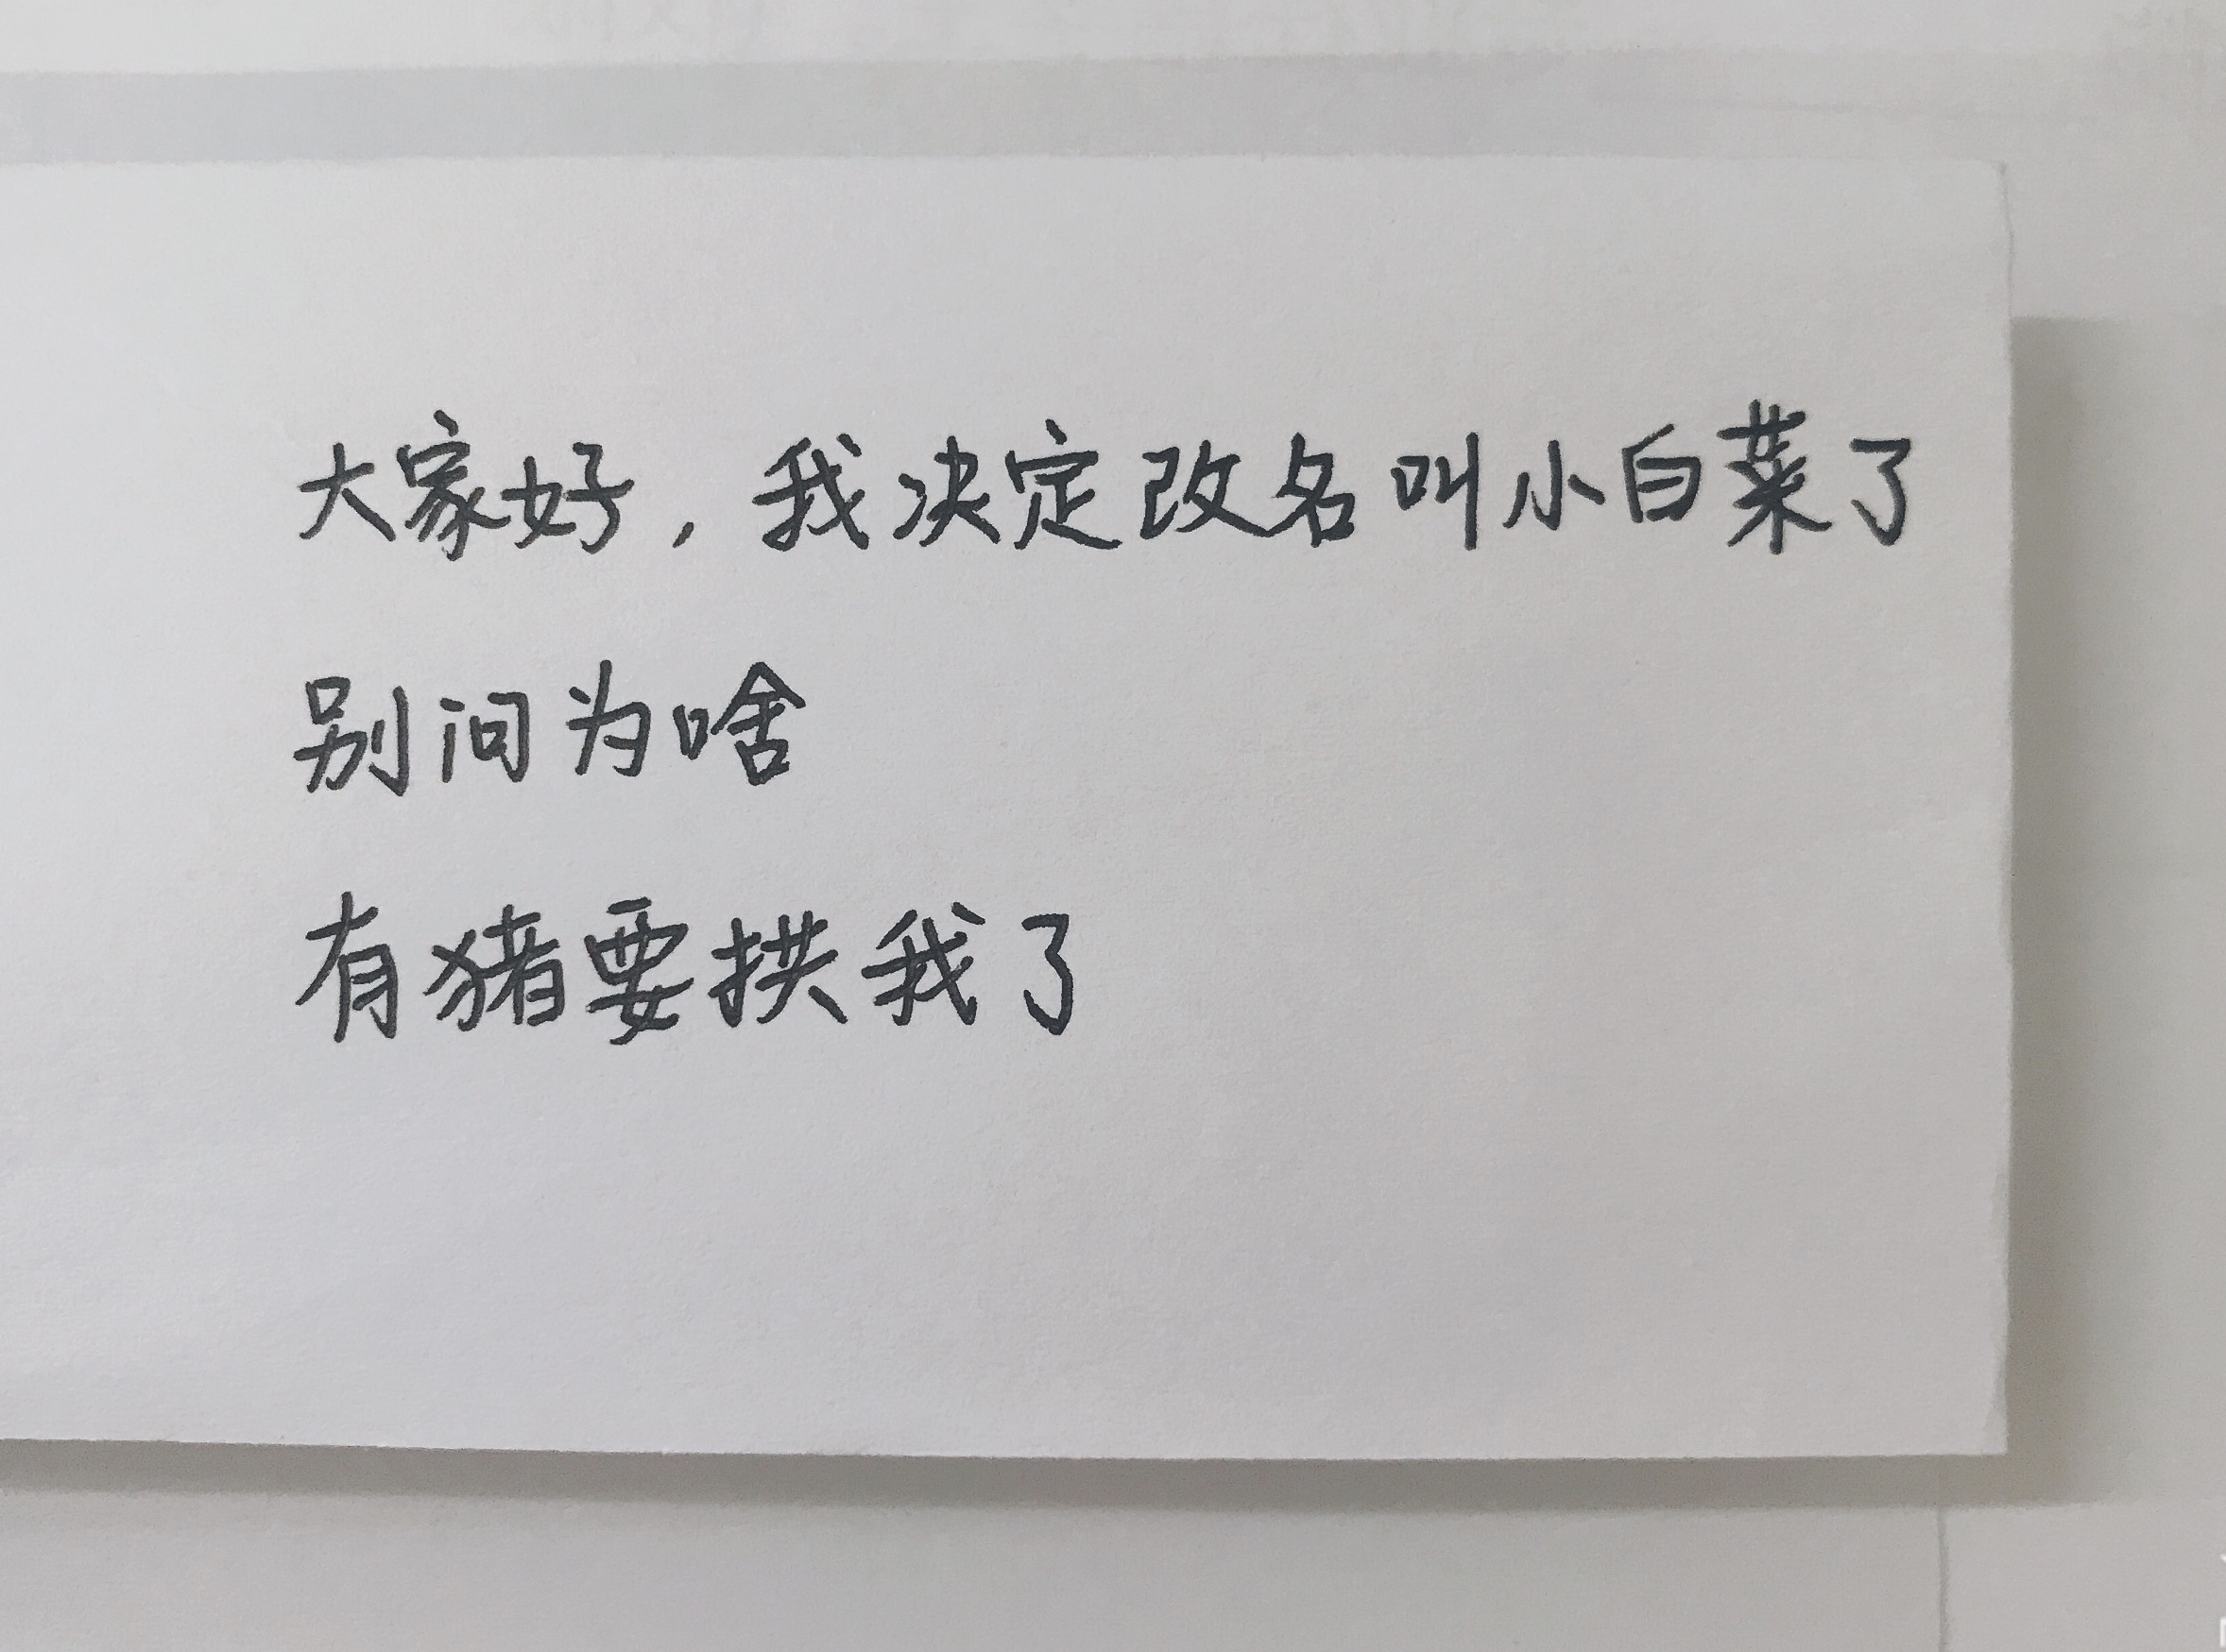 大家好，我决定改名叫小白菜了
别问为啥
有猪要拱我了